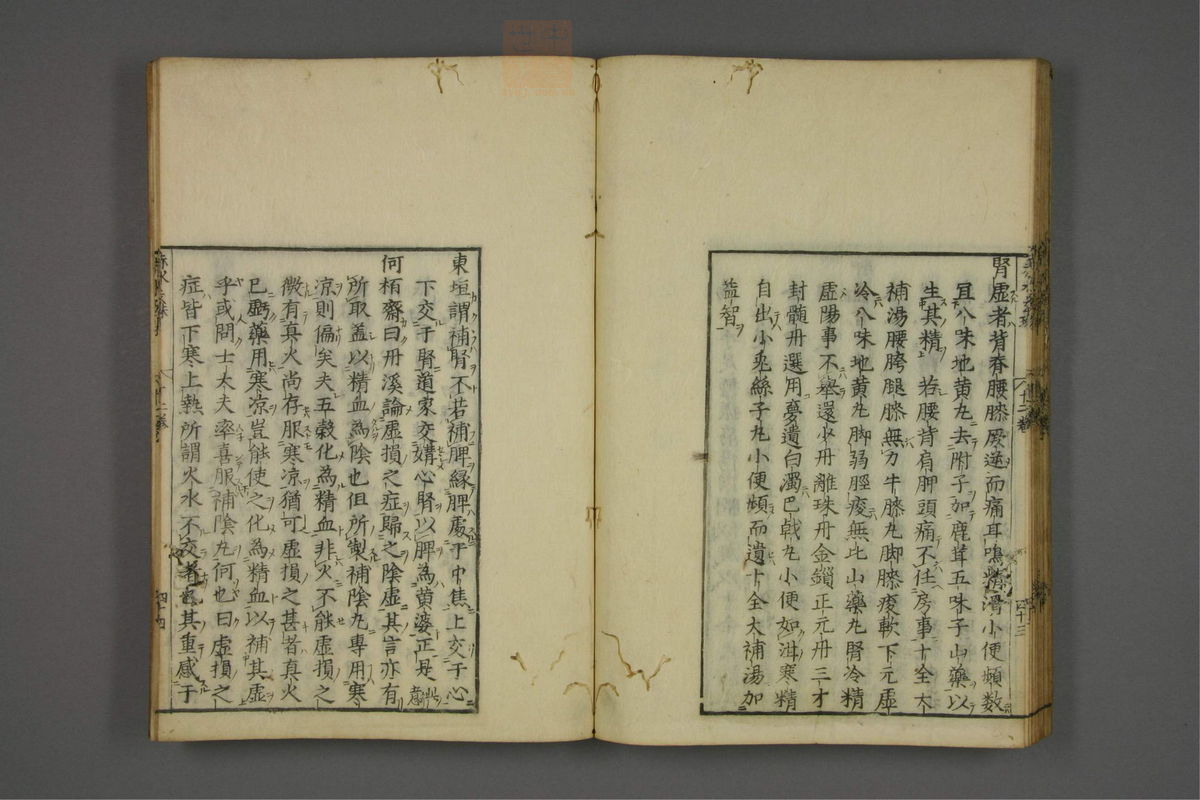 腎虛者背脊腰膝厥逆而痛耳鳴精滑小便頻数
宜八味地黄丸去附子加鹿茸五味子山藥以
生其精　若腰背肩胛頭痛不任房事十全大
補湯腰胯腿膝無力牛膝丸脚膝痠軟下元虛
冷八味地黄丸脚弱脛痠無比山藥丸腎冷精
虛陽事不舉還少丹離珠丹金鎖正元丹三才
封髓丹選用夢遺白濁巴戟丸小便如泔寒精
自出小兎絲子丸小便頻而遺十全大補湯加
益智
東垣謂補腎不若補脾縁脾處于中焦上交于心
下交于腎道家交媾心腎以脾為黄婆正是此意
何栢齋曰丹溪論虛損之症歸之陰虛其言亦有
所取盖以精血為陰也但所製補陰丸專用寒
凉則偏矣夫五穀化為精血非火不能虛損之
微有真火尚存服寒凉猶可虛損之甚者真火
已虧藥用寒凉豈能使之化為精血以補其虛
乎或問士太夫率喜服補陰丸何也曰虛損之
症皆下寒上熱所謂火水不交者也其重感于
四十三
四十四